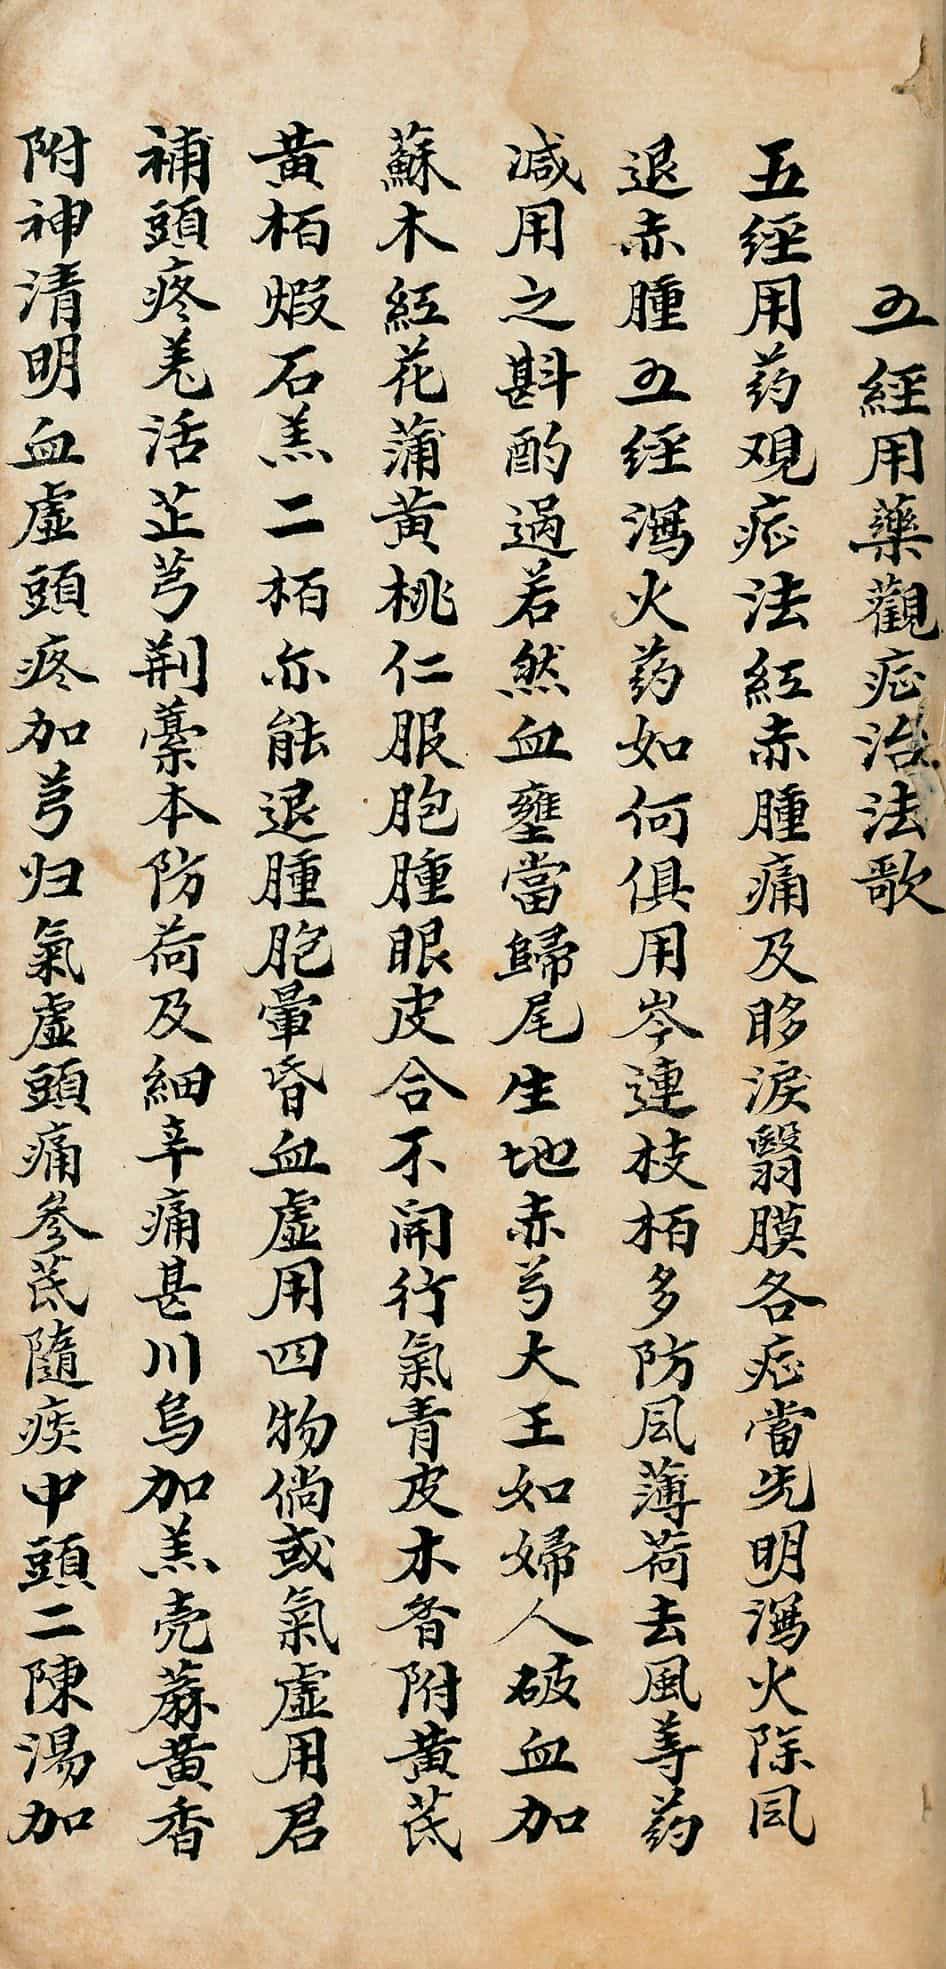 五經用藥觀症治法歌
五經用药观症法紅赤腫痛及眵淚翳膜各症當先明瀉火除風
退赤腫五經瀉火药如何俱用岑連枝栢多防風薄荷去風等药
減用之斟酌過若然血壅當歸尾生地赤芍大王如婦人破血加
蘇木紅花蒲黃桃仁服胞腫眼皮合不開行氣青皮木香附黃芪
黃栢煆石羔二栢亦能退腫胞暈昏血虛用四物倘或氣虛用君
補頭疼羌活芷芎荆藁本防荷及細辛痛甚川烏加羔壳蔴黃香
附神清明血虛頭疼加芎归氣虛頭痛參芪隨痰中頭二陳湯加